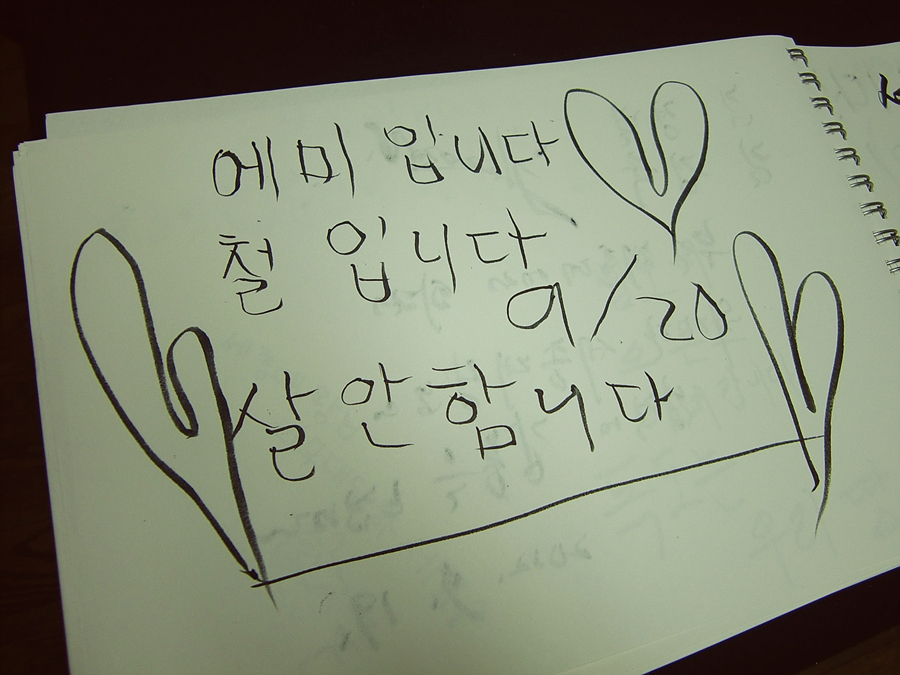 에미 입니다
철 입니다
9/20
살 안 함니다